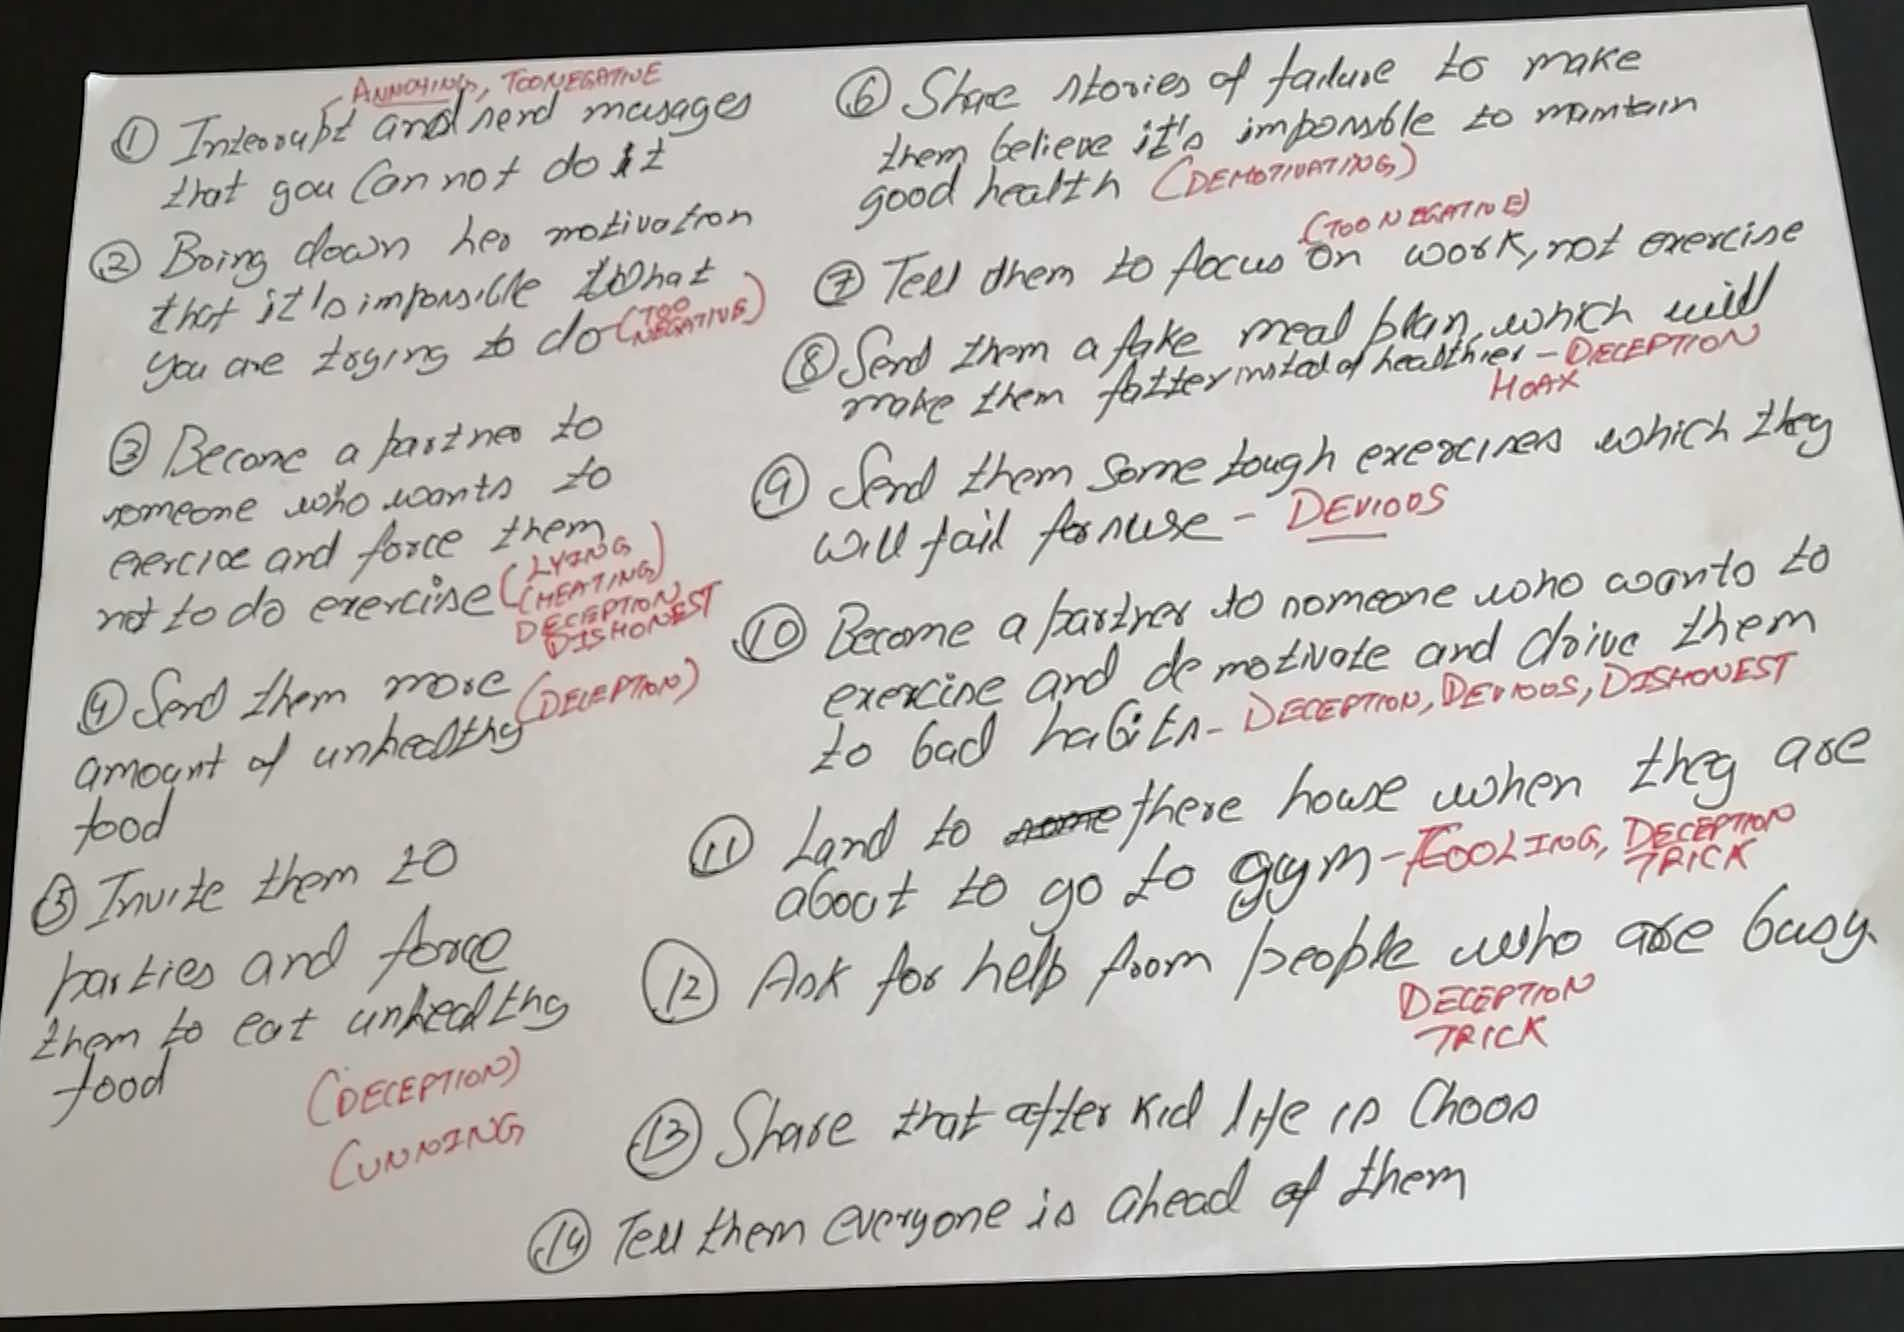 ANNOYING, TOO NEGATIVE
① Interrupt and send messages
that you can not do it
② Bring down her motivation
that it's impossible what
you are trying to do (TOO
NEGATIVE)
③ Become a partner to
someone who wants to
exercise and force them
not to do exercise (LYING
CHEATING)
DECEPTION
DISHONEST
④ Send them more (DECEPTION)
amount of unhealthy
food
⑤ Invite them to
parties and force
them to eat unhealthy
food
(DECEPTION)
CUNNING
⑥ Share stories of failure to make
them believe it's impossible to maintain
good health (DEMOTIVATING)
(TOO NEGATIVE)
⑦ Tell them to focus on work, not exercise
⑧ Send them a fake meal plan, which will
make them fatter insted of healthier - DECEPTION
HOAX
⑨ Send them some tough exercises which they
will fail for sure - DEVIOUS
⑩ Become a partner to someone who wants to
exercise and de motivate and drive them
to bad habits - DECEPTION, DEVIOUS, DISHONEST
⑪ Land to there house when they are
about to go to gym - FOOLING, DECEPTION
TRICK
⑫ Ask for help from people who are busy.
DECEPTION
TRICK
⑬ Share that after kid life is Choos
⑭ Tell them everyone is ahead of them